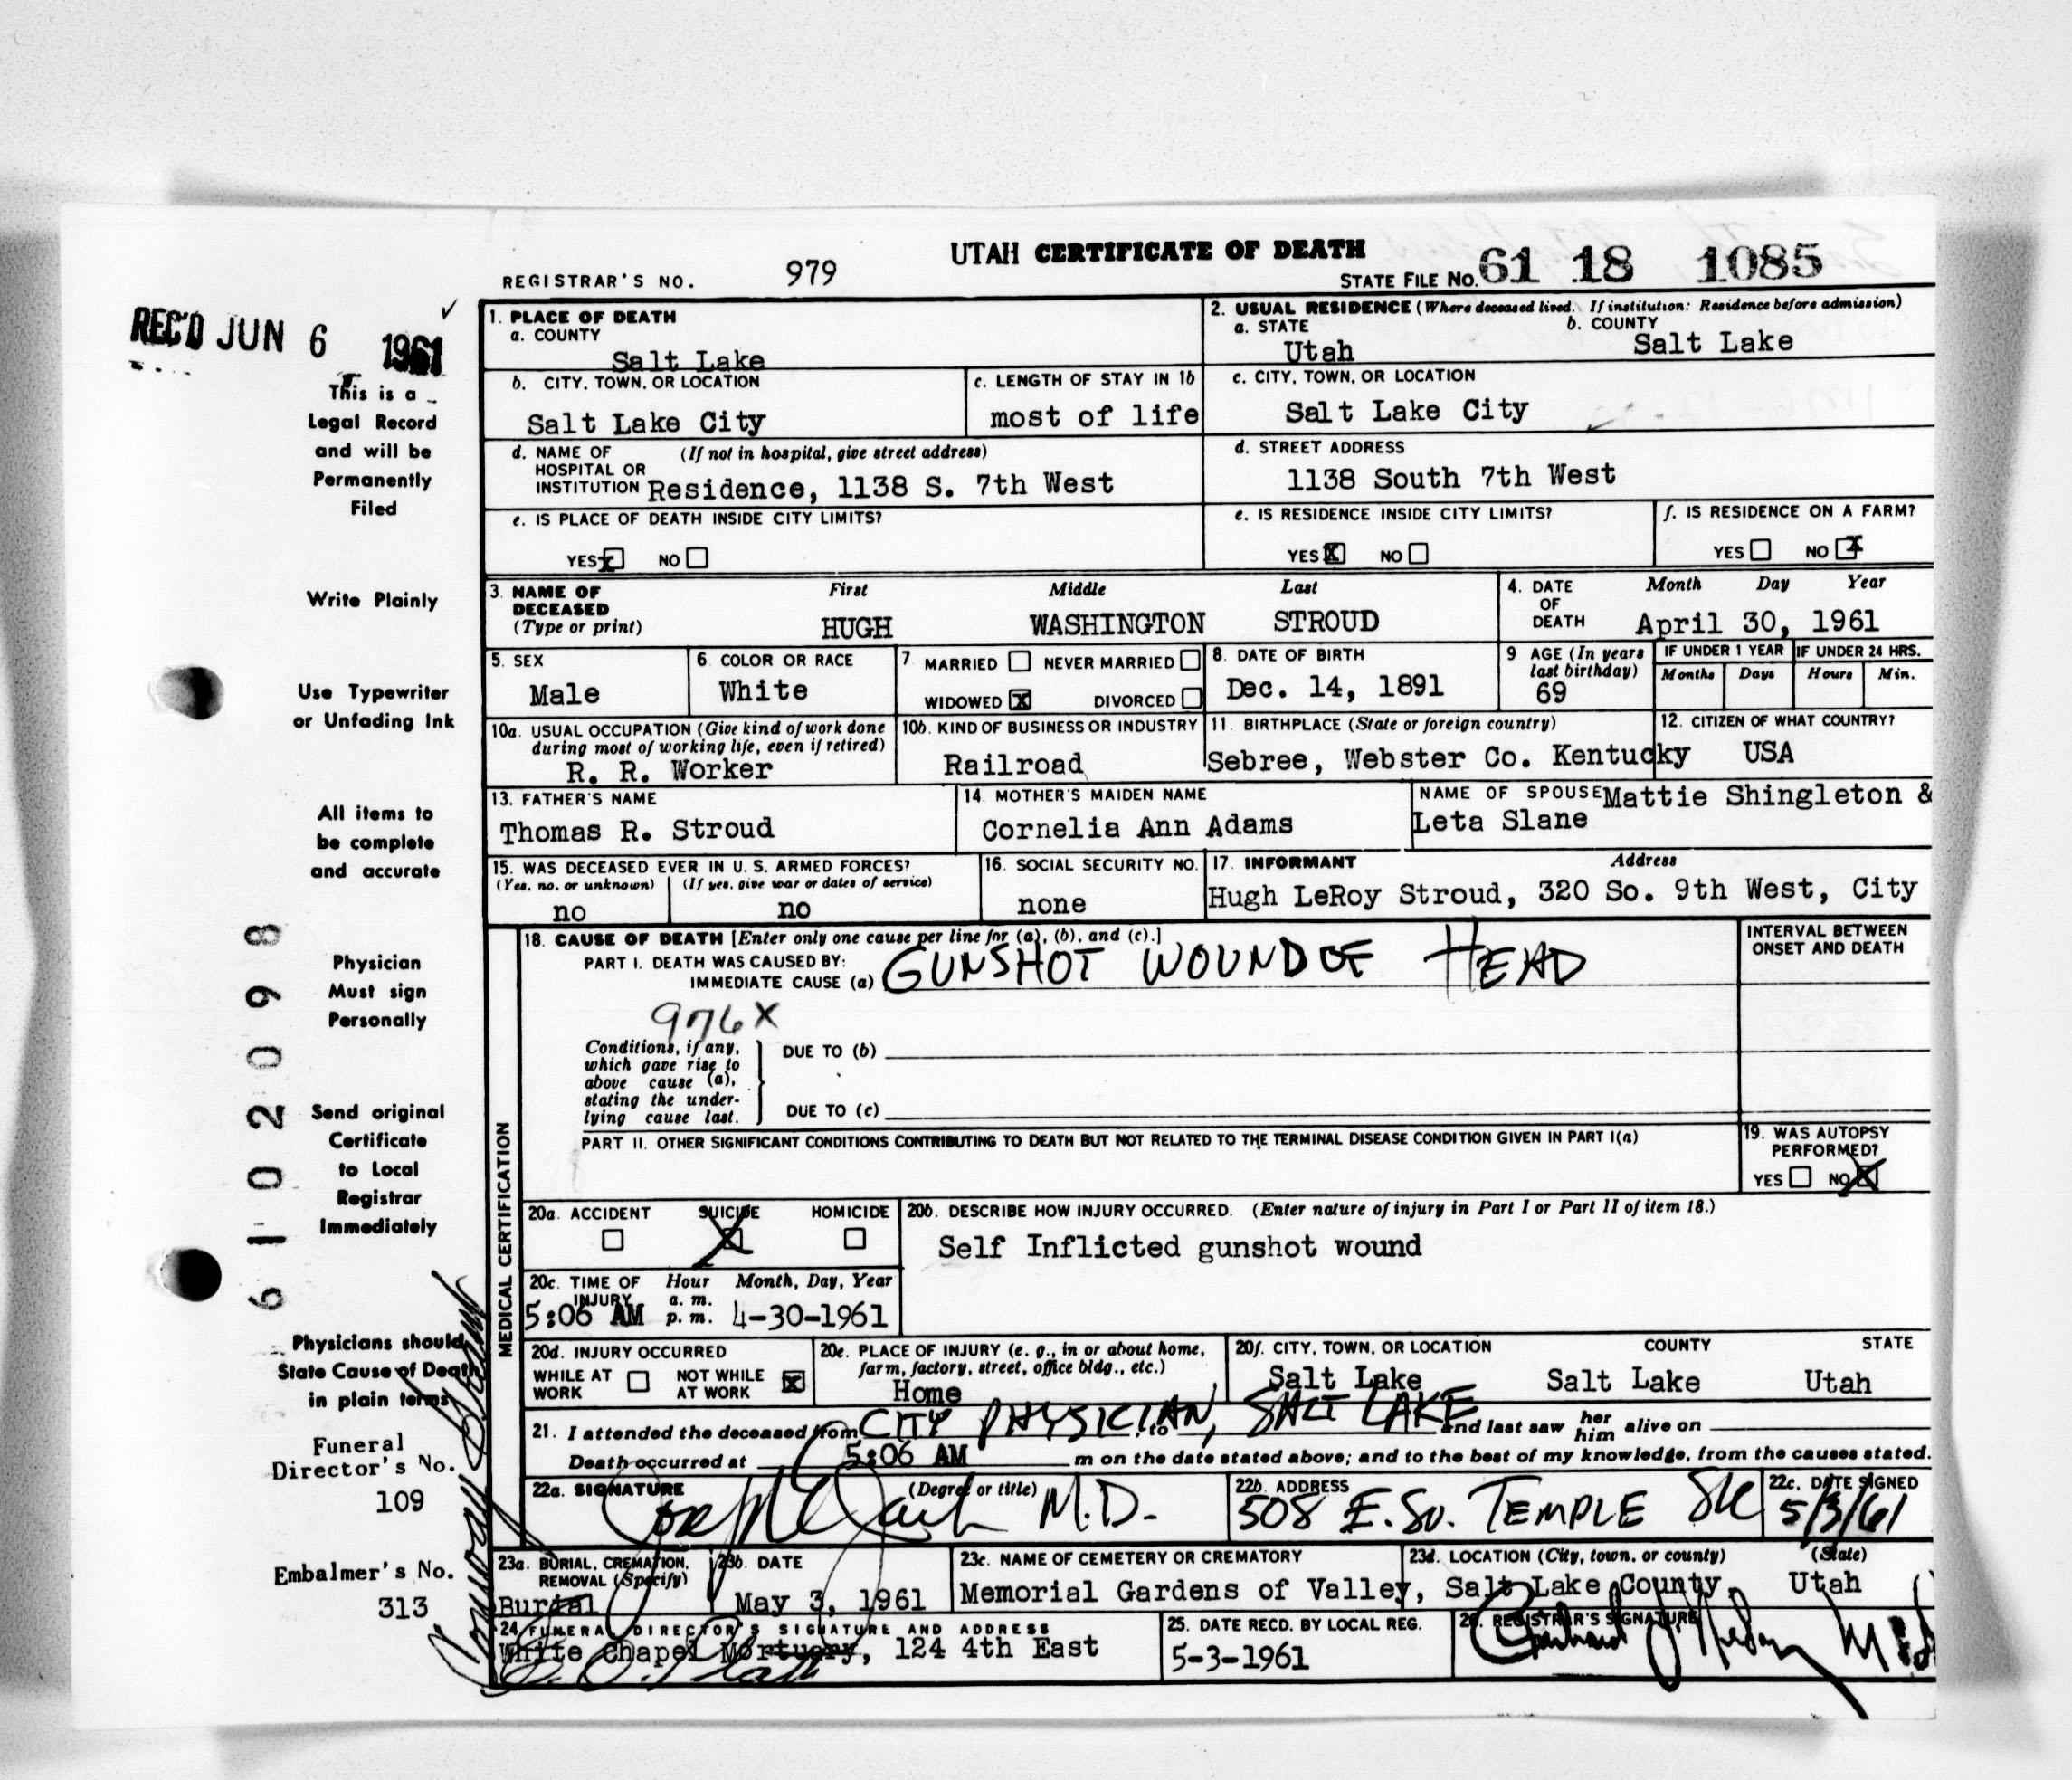 UTAH CERTIFICATE OF DEATH
REGISTRAR'S NO. 979
STATE FILE NO. 61 18 1085
REC'D JUN 6 1961
This is a
Legal Record
and will be
Permanently
Filed
Write Plainly
Use Typewriter
or Unfading Ink
All items to
be complete
and accurate
Physician
Must sign
Personally
Send original
Certificate
to Local
Registrar
Immediately
Physicians should
State Cause of Death
in plain terms
Funeral
Director's No.
109
Embalmer's No.
313
6102098
1. PLACE OF DEATH
a. COUNTY
Salt Lake
2. USUAL RESIDENCE (Where deceased lived. If institution: Residence before admission)
a. STATE b. COUNTY
Utah Salt Lake
b. CITY, TOWN, OR LOCATION
Salt Lake City
c. LENGTH OF STAY IN 1b
most of life
c. CITY, TOWN, OR LOCATION
Salt Lake City
d. NAME OF (If not in hospital, give street address)
HOSPITAL OR
INSTITUTION Residence, 1138 S. 7th West
d. STREET ADDRESS
1138 South 7th West
e. IS PLACE OF DEATH INSIDE CITY LIMITS?
YES X NO
e. IS RESIDENCE INSIDE CITY LIMITS?
YES X NO
f. IS RESIDENCE ON A FARM?
YES NO X
3. NAME OF DECEASED (Type or print)
First Middle Last
HUGH WASHINGTON STROUD
4. DATE OF DEATH
Month Day Year
April 30, 1961
5. SEX
Male
6. COLOR OR RACE
White
7 MARRIED NEVER MARRIED
WIDOWED X DIVORCED
8. DATE OF BIRTH
Dec. 14, 1891
9 AGE (In years last birthday)
69
IF UNDER 1 YEAR IF UNDER 24 HRS.
Months Days Hours Min.
10a. USUAL OCCUPATION (Give kind of work done
during most of working life, even if retired)
R. R. Worker
10b. KIND OF BUSINESS OR INDUSTRY
Railroad
11. BIRTHPLACE (State or foreign country)
Sebree, Webster Co. Kentucky
12. CITIZEN OF WHAT COUNTRY?
USA
13. FATHER'S NAME
Thomas R. Stroud
14. MOTHER'S MAIDEN NAME
Cornelia Ann Adams
NAME OF SPOUSE Mattie Shingleton &
Leta Slane
15. WAS DECEASED EVER IN U. S. ARMED FORCES?
(Yes, no, or unknown) (If yes, give war or dates of service)
no no
16. SOCIAL SECURITY NO.
none
17. INFORMANT Address
Hugh LeRoy Stroud, 320 So. 9th West, City
MEDICAL CERTIFICATION
18. CAUSE OF DEATH [Enter only one cause per line for (a), (b), and (c).]
PART I. DEATH WAS CAUSED BY:
IMMEDIATE CAUSE (a) GUNSHOT WOUND OF HEAD
INTERVAL BETWEEN
ONSET AND DEATH
976X
Conditions, if any,
which gave rise to
above cause (a),
stating the under-
lying cause last.
DUE TO (b)
DUE TO (c)
PART II. OTHER SIGNIFICANT CONDITIONS CONTRIBUTING TO DEATH BUT NOT RELATED TO THE TERMINAL DISEASE CONDITION GIVEN IN PART I(a)
19. WAS AUTOPSY
PERFORMED?
YES NO X
20a. ACCIDENT SUICIDE HOMICIDE
X
20b. DESCRIBE HOW INJURY OCCURRED. (Enter nature of injury in Part I or Part II of item 18.)
Self Inflicted gunshot wound
20c. TIME OF INJURY Hour Month, Day, Year
a. m.
p. m.
5:06 AM 4-30-1961
20d. INJURY OCCURRED
WHILE AT WORK NOT WHILE AT WORK X
20e. PLACE OF INJURY (e. g., in or about home,
farm, factory, street, office bldg., etc.)
Home
20f. CITY, TOWN, OR LOCATION COUNTY STATE
Salt Lake Salt Lake Utah
21. I attended the deceased from CITY PHYSICIAN, to SALT LAKE and last saw her him alive on
Death occurred at 5:06 AM m on the date stated above; and to the best of my knowledge, from the causes stated.
22a. SIGNATURE (Degree or title)
M.D.
22b. ADDRESS
508 E. So. TEMPLE SLC
22c. DATE SIGNED
5/3/61
23a. BURIAL, CREMATION,
REMOVAL (Specify)
Burial
23b. DATE
May 3, 1961
23c. NAME OF CEMETERY OR CREMATORY
Memorial Gardens of Valley,
23d. LOCATION (City, town, or county) (State)
Salt Lake County, Utah
24 FUNERAL DIRECTOR'S SIGNATURE AND ADDRESS
White Chapel Mortuary, 124 4th East
25. DATE RECD. BY LOCAL REG.
5-3-1961
26. REGISTRAR'S SIGNATURE